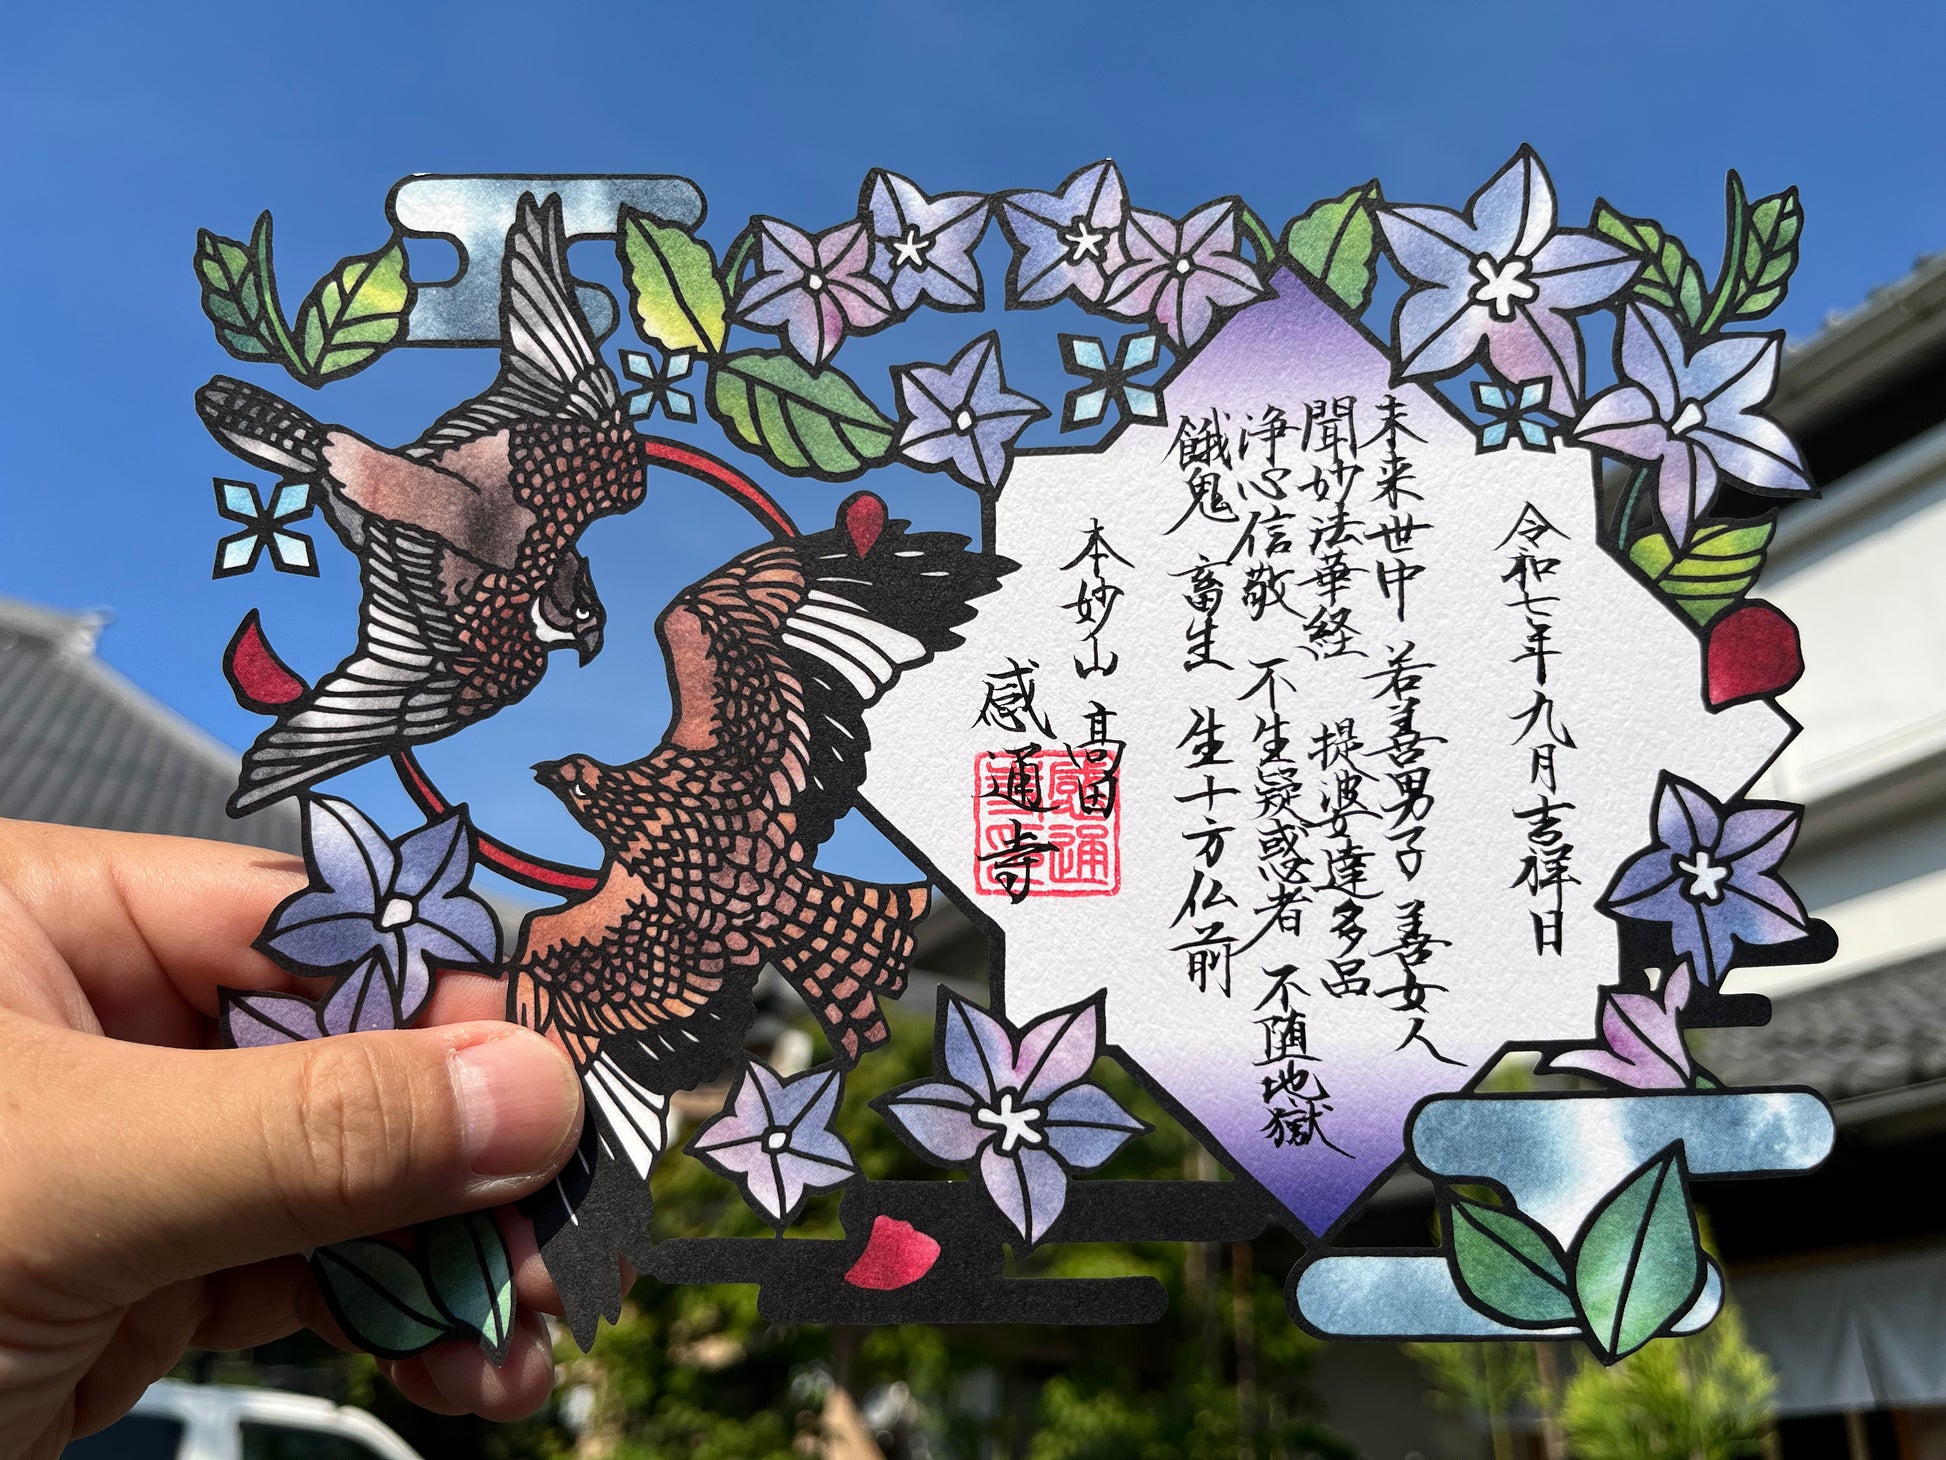 令和七年九月吉祥日
未来世中 若善男子 善女人
聞妙法華経 提婆達多品
浄心信敬 不生疑惑者 不随地獄
餓鬼 畜生 生十方仏前
本妙山 髙田
感通寺
感通寺印